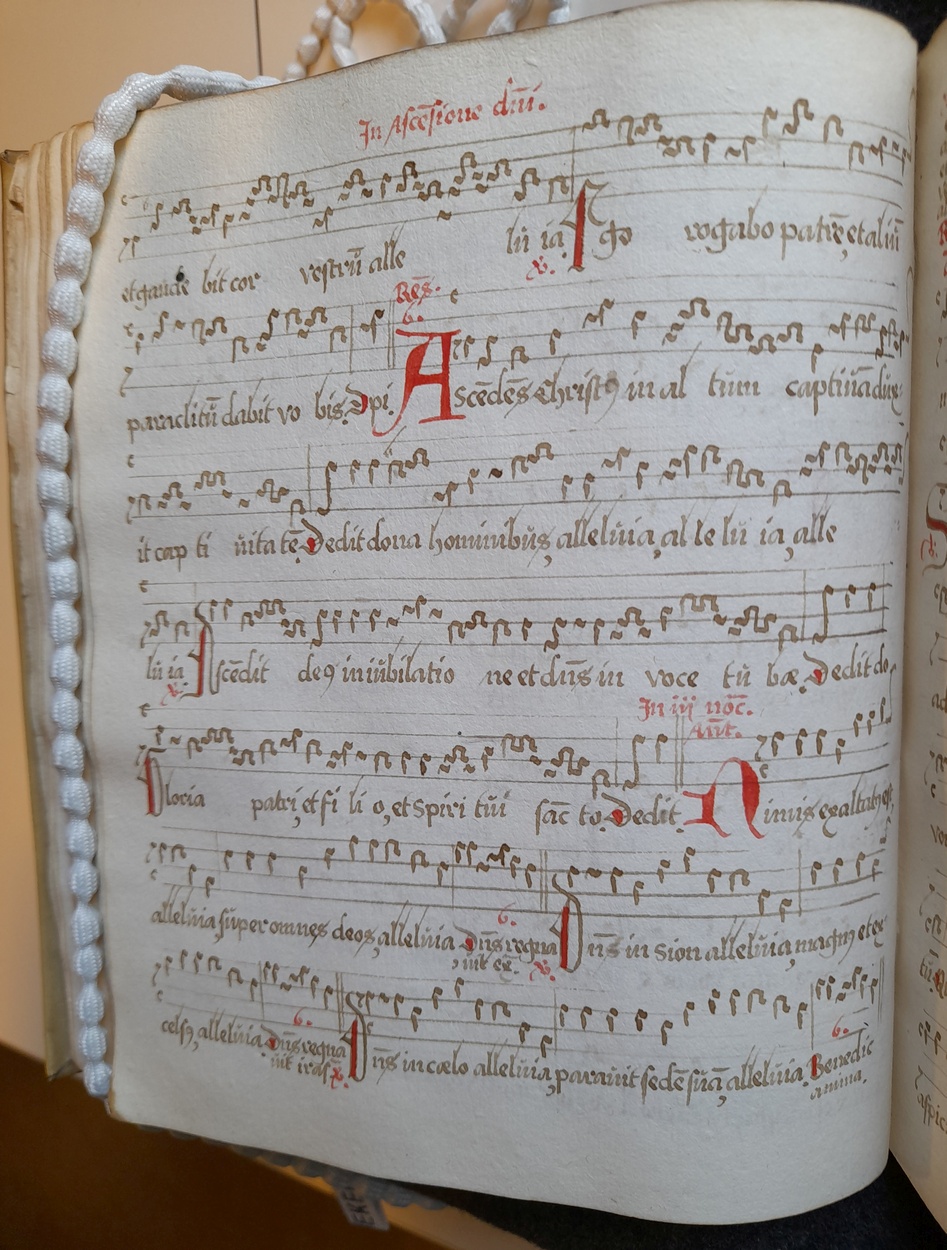 In Ascēsione dñi.
et gaude bit cor vestrū alle lu ia. Ego rogabo patrē, et aliū
℣.
Res̄.
6.
paraclitū dabit vo bis. Et pi. Ascēdēs Christ9 in al tum captiuā dux
it cap ti uitatē. Dedit dona hominibus, alleluia, al le lu ia, alle
lu ia. Ascēdit de9 in iubilatio ne et dn̄s in voce tu bæ. Dedit do
℣.
In iij noc̄.
Ant̄.
Gloria patri, et fi li o, et spiri tui sāc to. Dedit. Nimis exaltat9 est,
alleluia super omnes deos, alleluia. Dn̄s regna Dn̄s in sion alleluia, magn9 et ex
6.
uit ex. ℣.
cels9, alleluia. Dn̄s regna Dn̄s in cælo alleluia, parauit sedē suā, alleluia. Benedic
6.
uit iras. ℣.
6.
anima.